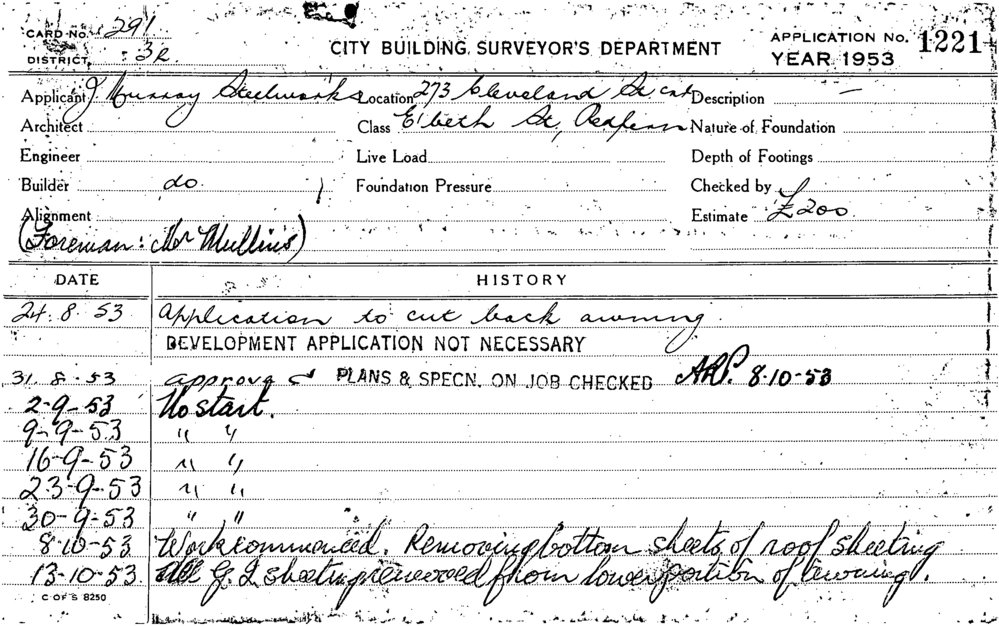 CARD No. 291
DISTRICT 3R.
CITY BUILDING SURVEYOR'S DEPARTMENT
APPLICATION No. 1221
YEAR 1953
Applicant J Murray Steelworks Location 273 Cleveland St. cnr Description —
Architect Class Elbeth St, Redfern Nature of Foundation
Engineer Live Load Depth of Footings
Builder do. Foundation Pressure Checked by
Alignment Estimate £200
(Foreman: Mr Mullins)
DATE HISTORY
24.8.53 Application to cut back awning.
DEVELOPMENT APPLICATION NOT NECESSARY
31.8.53 approved PLANS & SPECN. ON JOB CHECKED 8-10-53
2-9-53 No start.
9-9-53 " "
16-9-53 " "
23-9-53 " "
30-9-53 " "
8-10-53 Work commenced. Removing bottom sheets of roof sheeting
13-10-53 All G.I. sheeting removed from lower portion of awning.
C OF S 8250